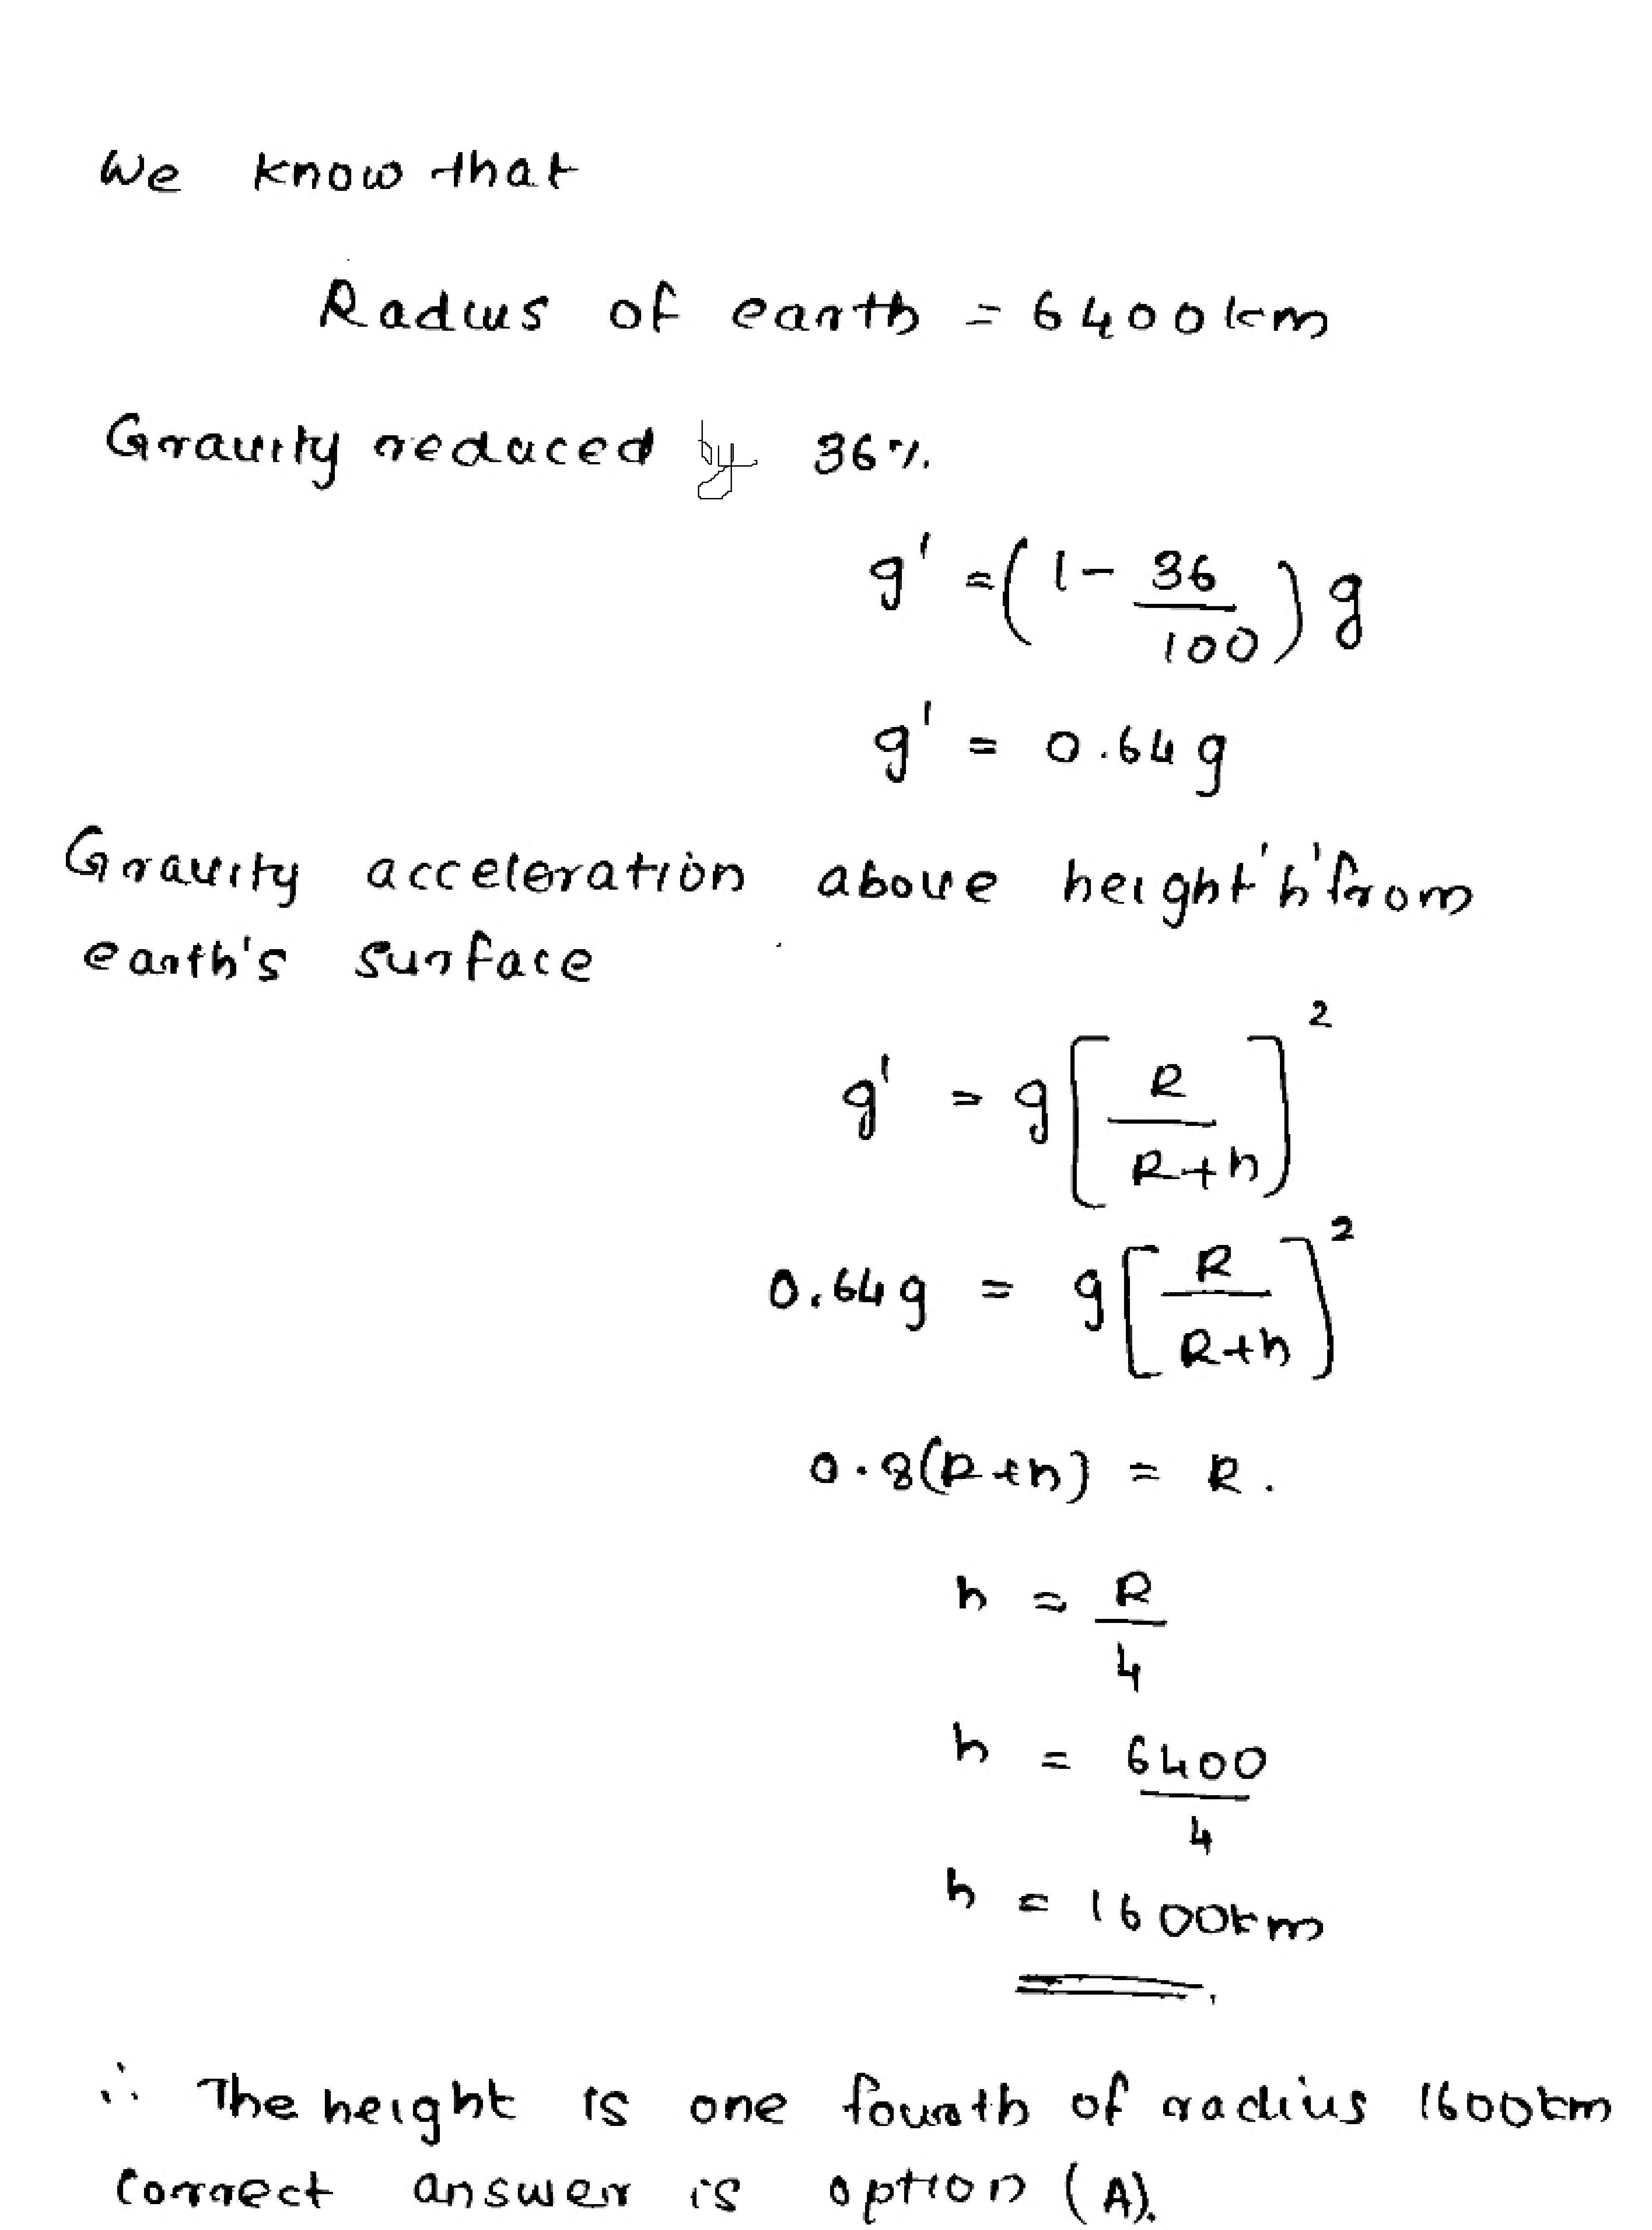 We know that
Radius of earth = 6400km
Gravity reduced by 36%.
g' = (1 - 36/100) g
g' = 0.64g
Gravity acceleration above height 'h' from
earth's surface
g' = g[R/R+h]²
0.64g = g[R/R+h]²
0.8(R+h) = R.
h = R/4
h = 6400/4
h = 1600km
∴ The height is one fourth of radius 1600km
correct answer is option (A).